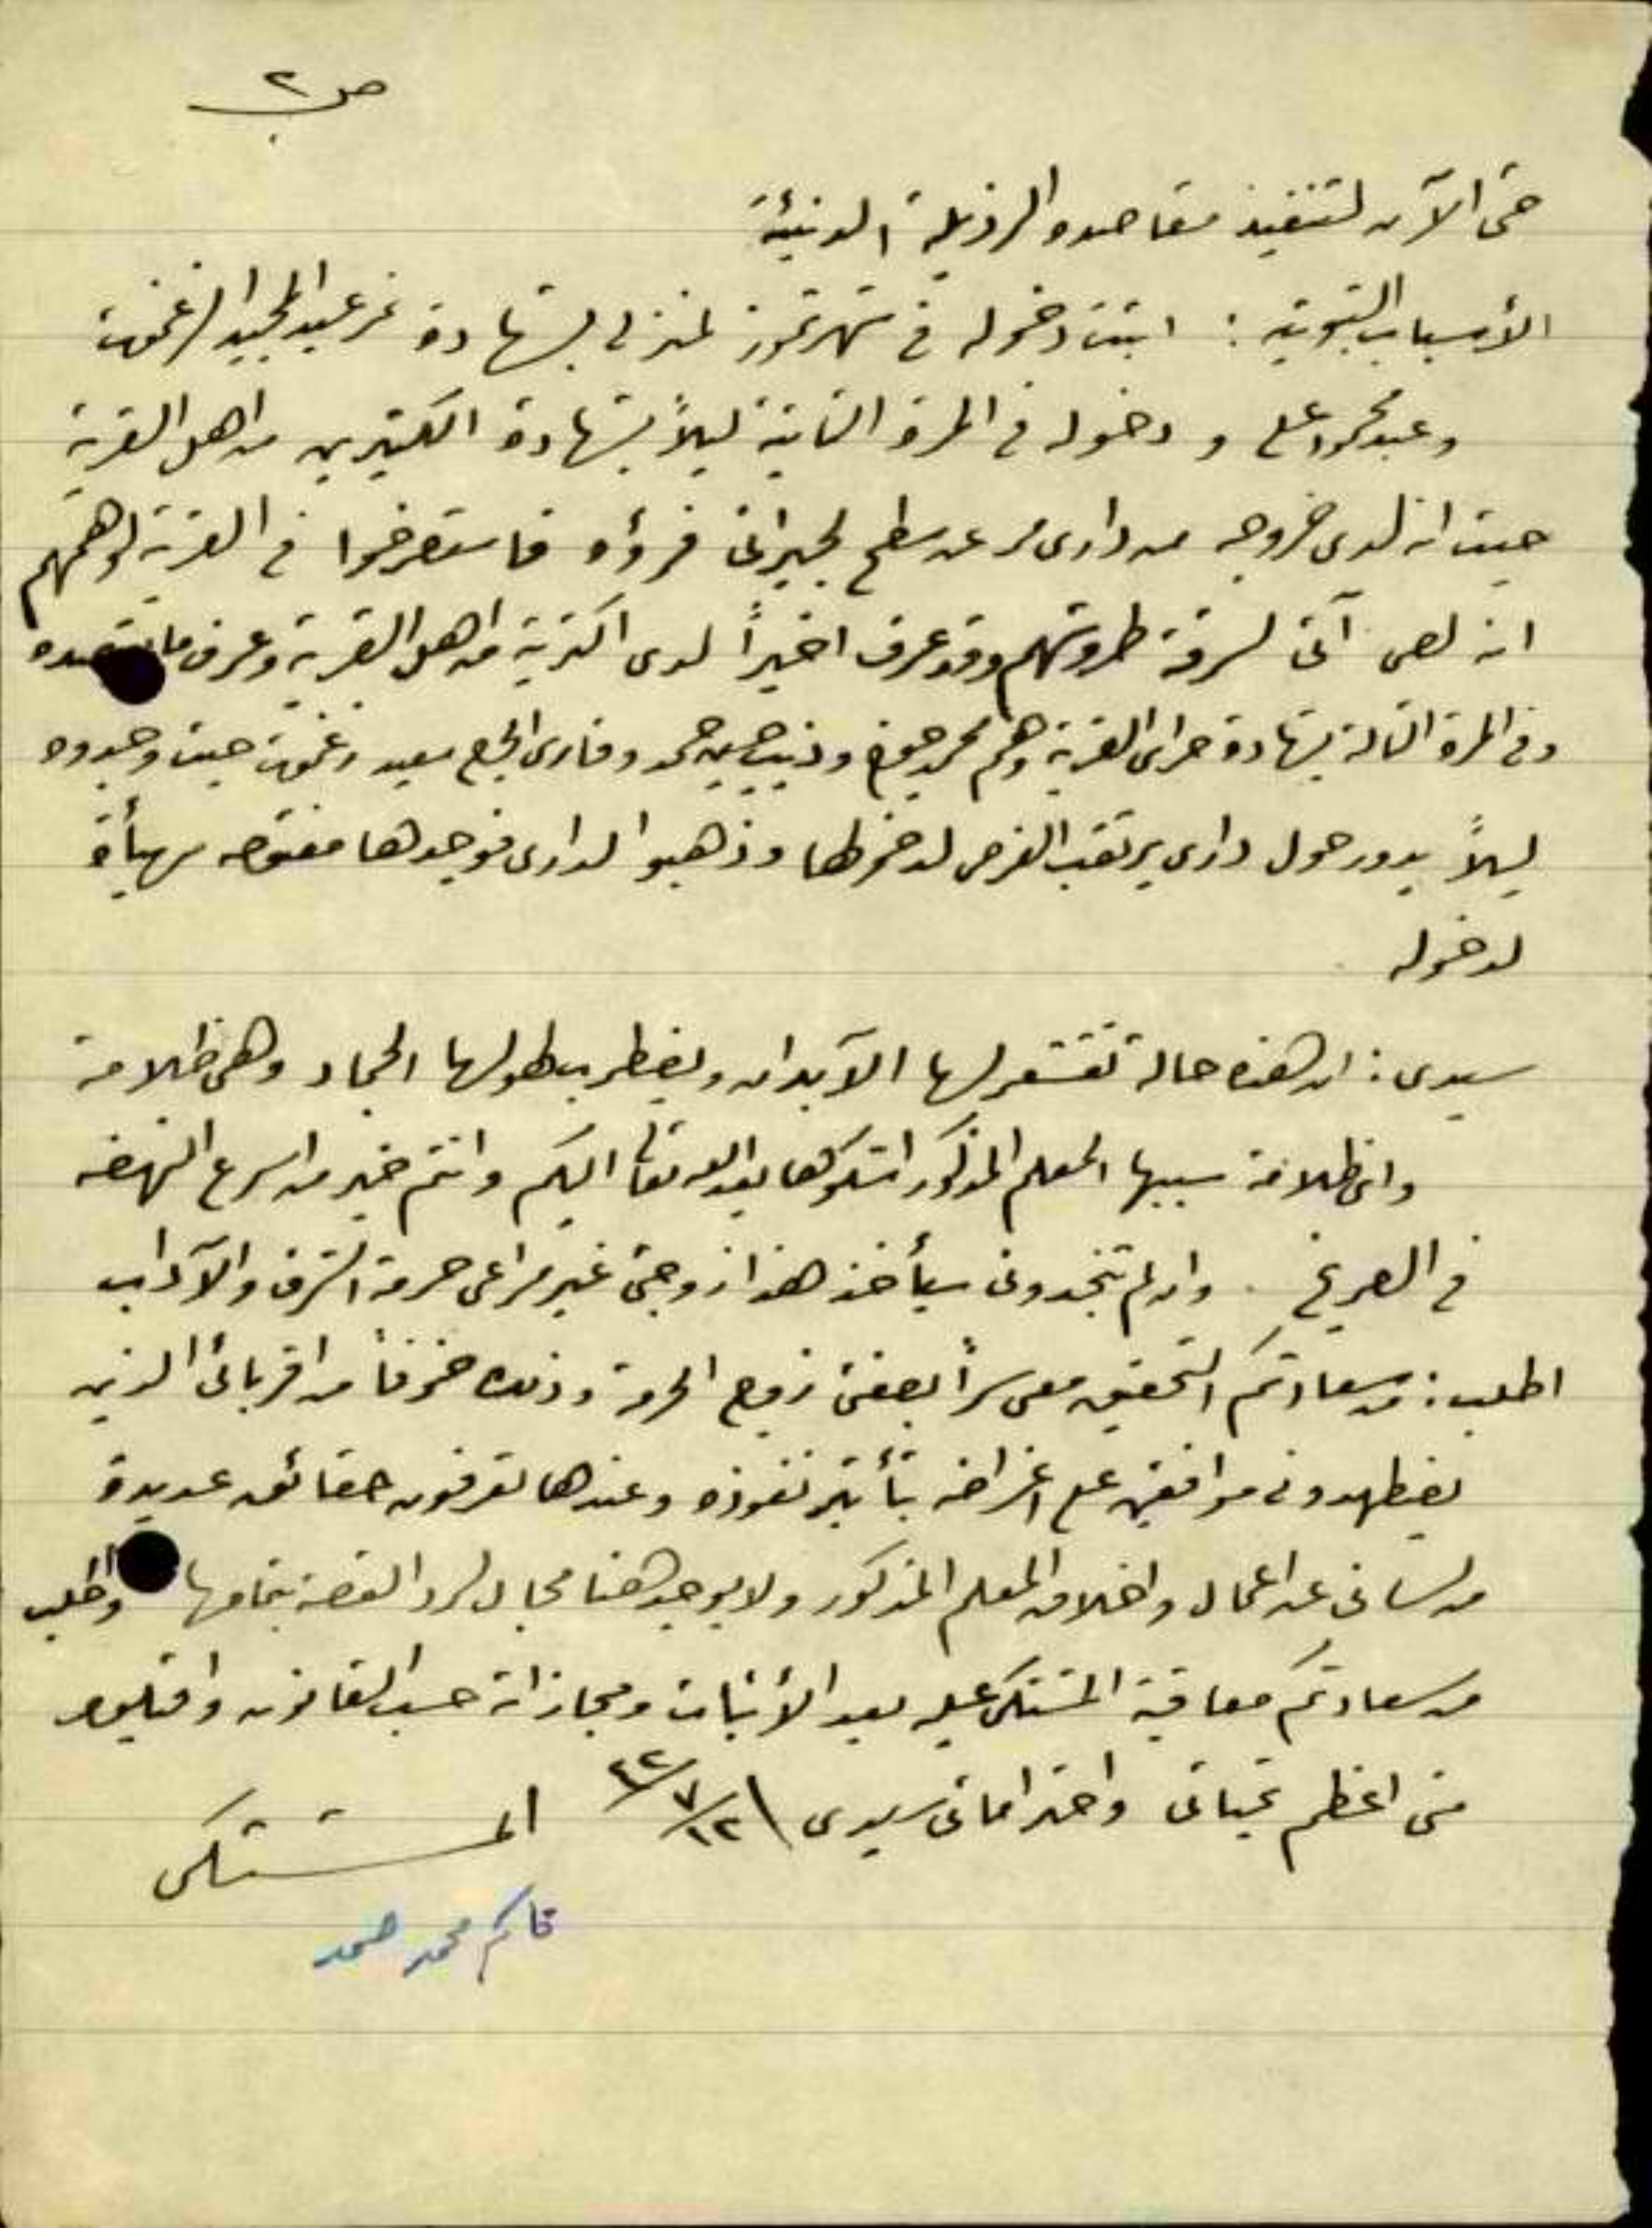 ص ٢
حتى الآن لتنفيذ مقاصده الرذيلة الدنيئة
الأسباب الثبوتية : اثبت دخوله في شهر تموز لمنزلي بشهادة نمر عبد المجيد الزغموت
وعبد محمود علي و دخوله في المرة الثانية ليلاً بشهادة الكثيرين من اهل القرية
حيث انه لدى خروجه من داري مر عن سطح لجيراني فرؤه فاستصرخوا في القرية لوهمهم
انه لص آتى لسرقة طروشهم وقد عرف اخيراً لدى اكثرية من اهل القرية وعرف ما يقصده
وفي المرة الثالثة بشهادة حراس القرية وهم محمد وذيب حسين حمد وفارس الحج سعيد زغموت حيث وجدوه
ليلاً يدور حول داري يرتقب الفرص لدخولها وذهبوا لداري فوجدها مفتوحه مهيأة
لدخوله
سيدي : ان هذه حالة تقشعر لها الآبدان ويضطرب لهولها الجماد وهي ظلامة
واي ظلامة سببها المعلم المذكور اشكوها بعد الله تعالى اليكم وانتم خير من اسرع النهضه
في الصريخ . وان لم تنجدوني سيأخذ هذا زوجتي غير مراعى حرمة الشرف والآداب
اطلب : من سعادتكم التحقيق معي سراً بصفتي زوج الحرمة وذلك خوفاً من اقربائي الذين
يضطهدوني موافقين على اغراضه بتأثير نفوذه وعندها تعرفون حقائق عديدة
من لساني عن اعمال واخلاق المعلم المذكور ولا يوجد هنا مجال لسرد القصة بتمامها واطلب
من سعادتكم معاقبة المشتكى عليه بعد الأثبات ومجازاته حسب القانون واقبلوا
مني اعظم تحياتي واحتراماتي سيدي ١٢/٧/٤٢
المشتكي
قاسم محمد حمد